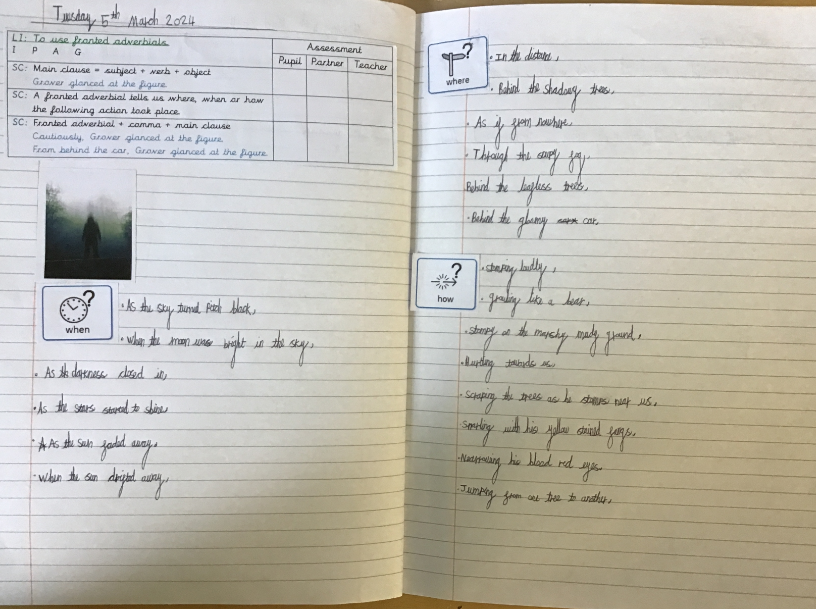 Tuesday 5th March 2024
LI: To use fronted adverbials
I P A G
Assessment
Pupil Partner Teacher
SC: Main clause = subject + verb + object
Grover glanced at the figure.
SC: A fronted adverbial tells us where, when or how
the following action took place.
SC: Fronted adverbial + comma + main clause
Cautiously, Grover glanced at the figure.
From behind the car, Grover glanced at the figure.
?
when
• As the sky turned pitch black,
• When the moon was bright in the sky,
• As the darkness closed in,
• As the stars started to shine,
• As the sun faded away,
• When the sun drifted away,
?
where
• In the distance,
• Behind the shadowy trees,
• As if from nowhere,
• Through the fog,
Behind the leafless trees,
• Behind the gloomy car,
?
how
• loudly,
• growling like a bear,
• on the marshy ground,
• towards us
• Scraping the trees as he near us,
Snarling with his yellow stained fangs,
his blood red eyes,
• Jumping from one tree to another,